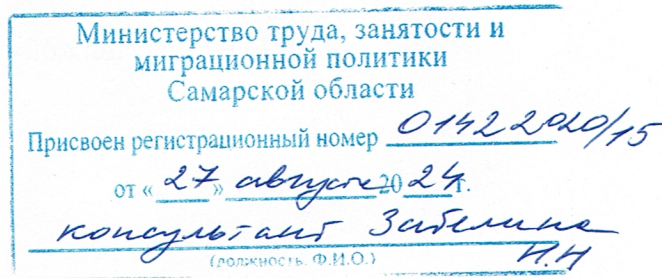 Министерство труда, занятости и
миграционной политики
Самарской области
Присвоен регистрационный номер 01422020/15
от «27» августа 2024г.
консультант Забелина
Н.Н
(должность, Ф.И.О.)